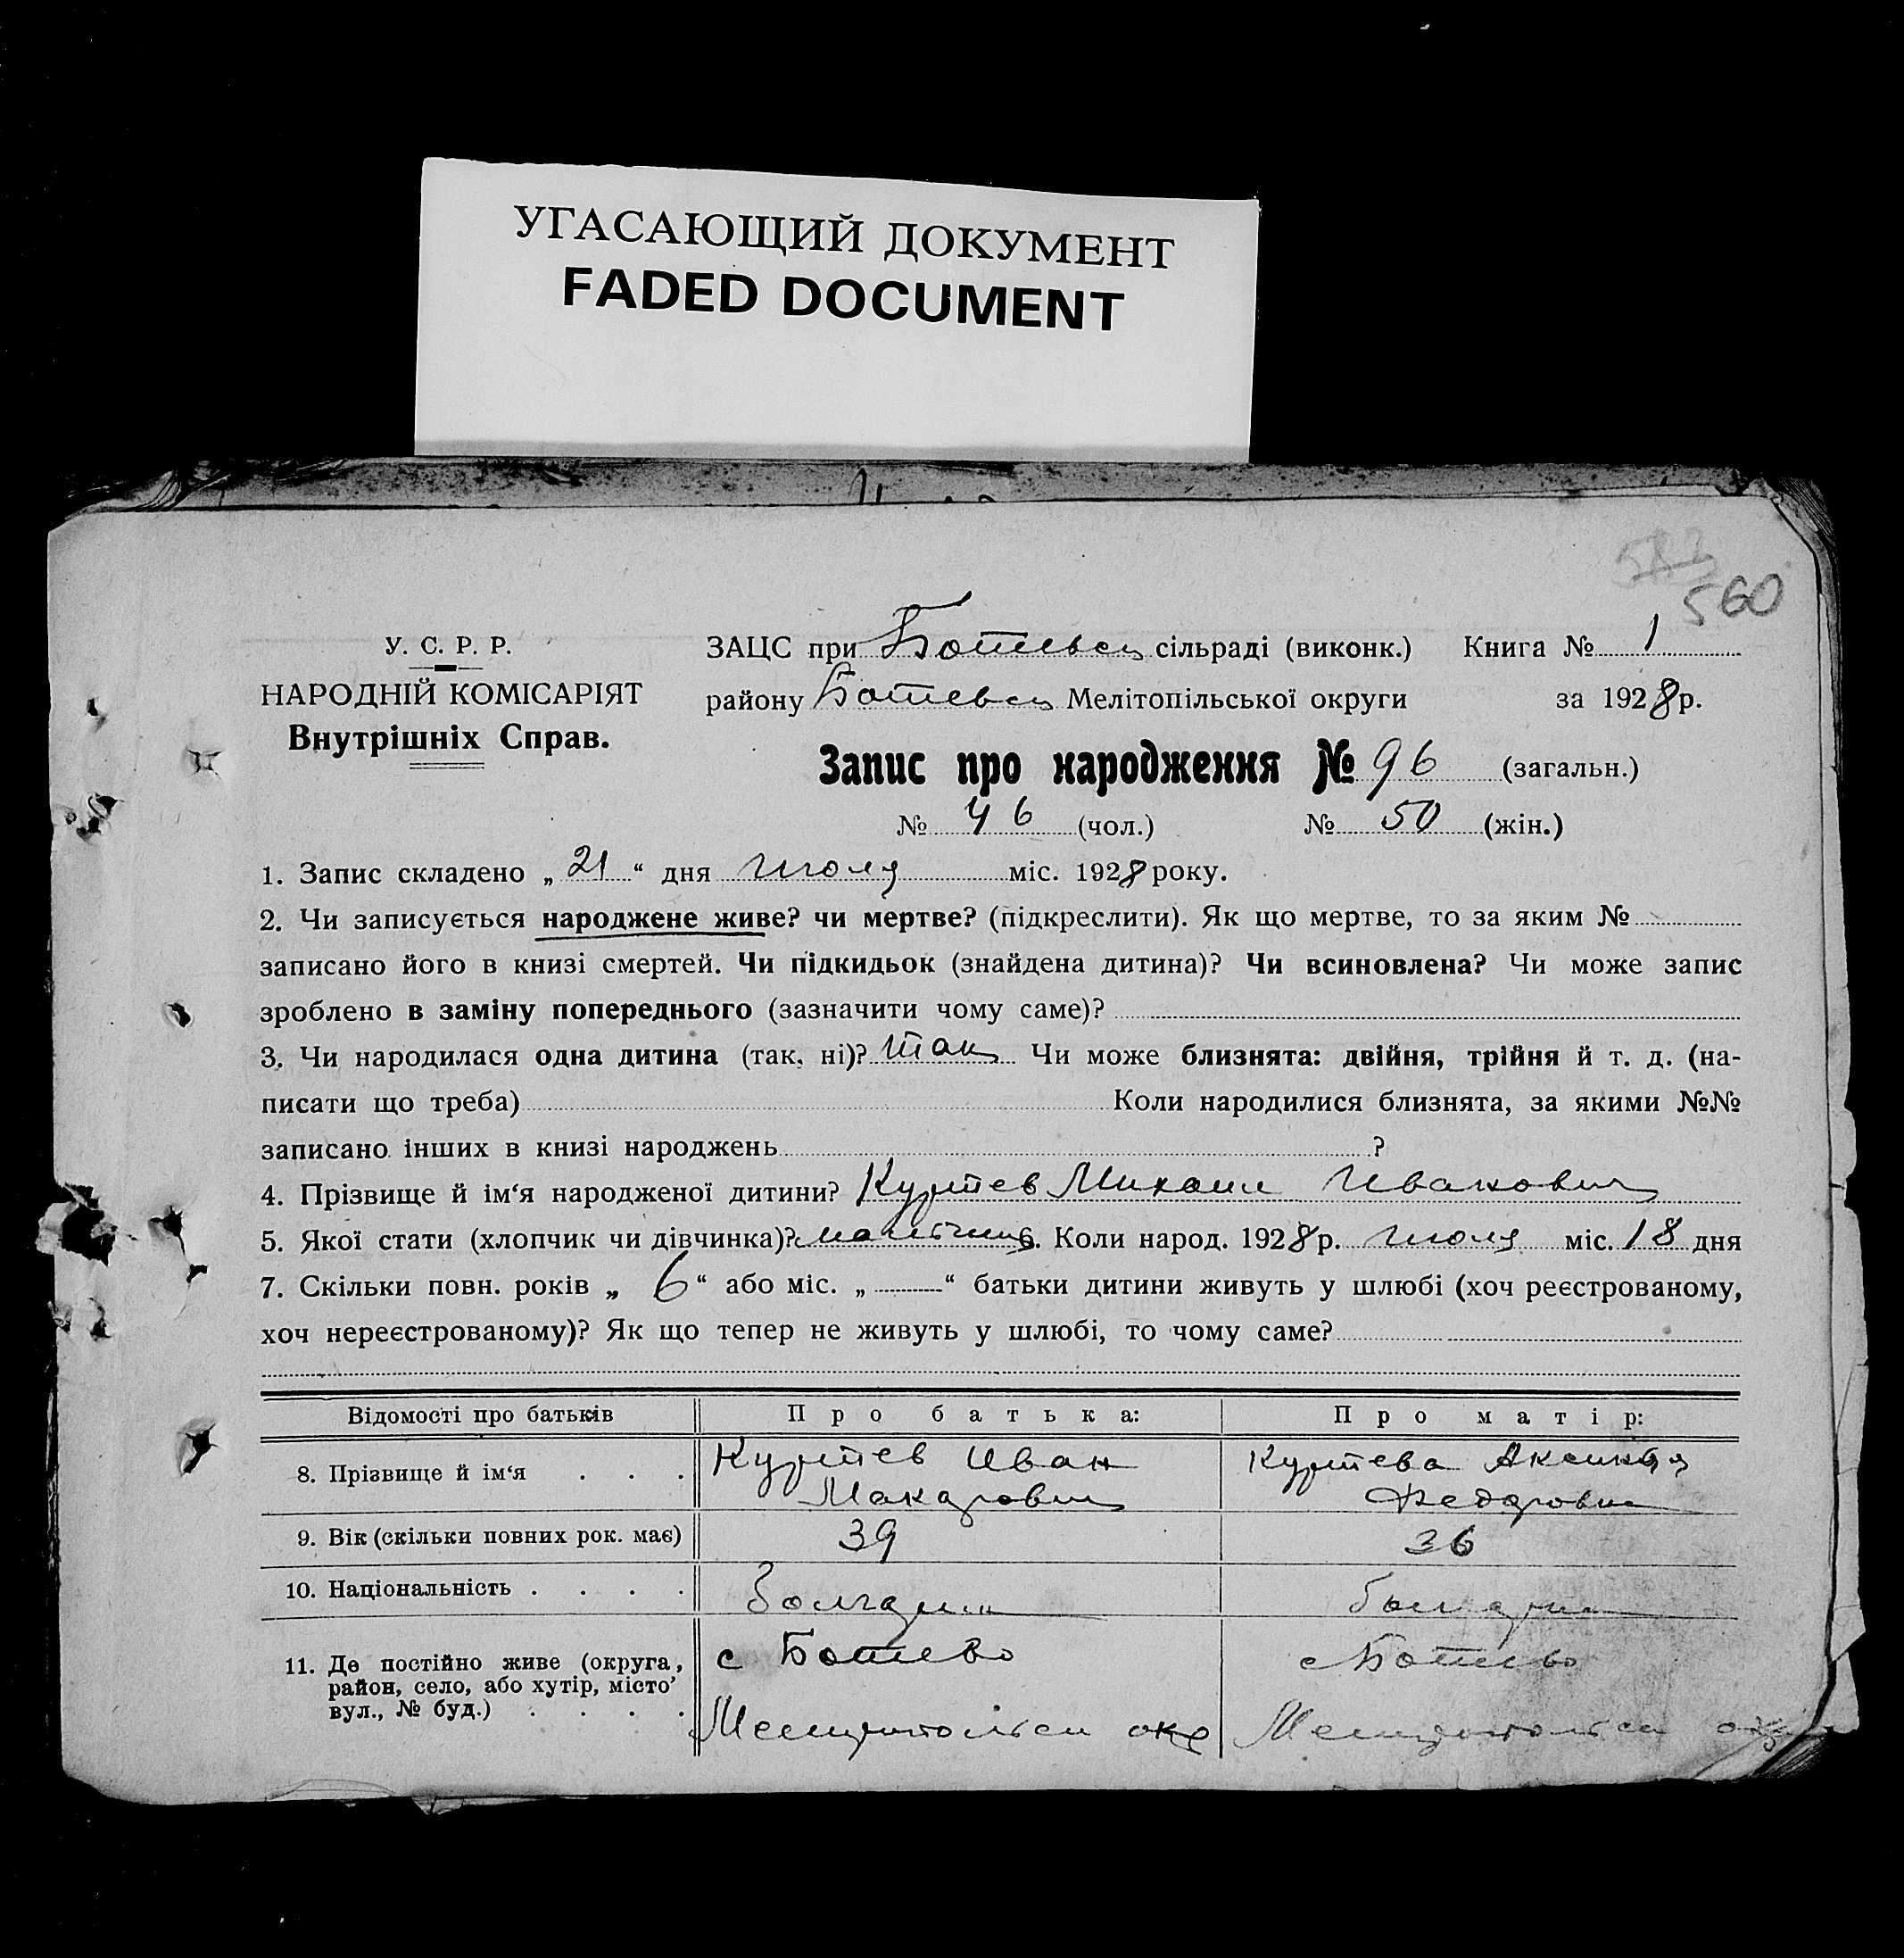 УГАСАЮЩИЙ ДОКУМЕНТ
FADED DOCUMENT
560
У. С. Р. Р.
НАРОДНІЙ КОМІСАРІЯТ
Внутрішніх Справ.
ЗАЦС при Ботевск сільраді (виконк.) Книга № 1
району Ботевск Мелітопільської округи за 1928 р.
Запис про народження № 96 (загальн.)
№ 46 (чол.) № 50 (жін.)
1. Запис складено „ 21 “ дня июля міс. 1928 року.
2. Чи записується народжене живе? чи мертве? (підкреслити). Як що мертве, то за яким №
записано його в книзі смертей. Чи підкидьок (знайдена дитина)? Чи всиновлена? Чи може запис
зроблено в заміну попереднього (зазначити чому саме)?
3. Чи народилася одна дитина (так, ні)? так Чи може близнята: двійня, трійня й т. д. (на-
писати що треба) Коли народилися близнята, за якими №№
записано інших в книзі народжень ?
4. Прізвище й ім‘я народженої дитини? Куртев Михаил Иванович
5. Якої стати (хлопчик чи дівчинка)? мальчик 6. Коли народ. 1928 р. июля міс. 18 дня
7. Скільки повн. років „ 6 “ або міс. „ “ батьки дитини живуть у шлюбі (хоч реєстрованому,
хоч нереєстрованому)? Як що тепер не живуть у шлюбі, то чому саме?
Відомості про батьків Про батька: Про матір:
8. Прізвище й ім‘я . . . Куртев Иван Макарович Куртева Аксинья Федоровна
9. Вік (скільки повних рок. має) 39 36
10. Національність . . . . болгарин
11. Де постійно живе (округа, с Ботево с Ботево
район, село, або хутір, місто’
вул., № буд.) . . . . Мелитопольск окр Мелитопольск окр